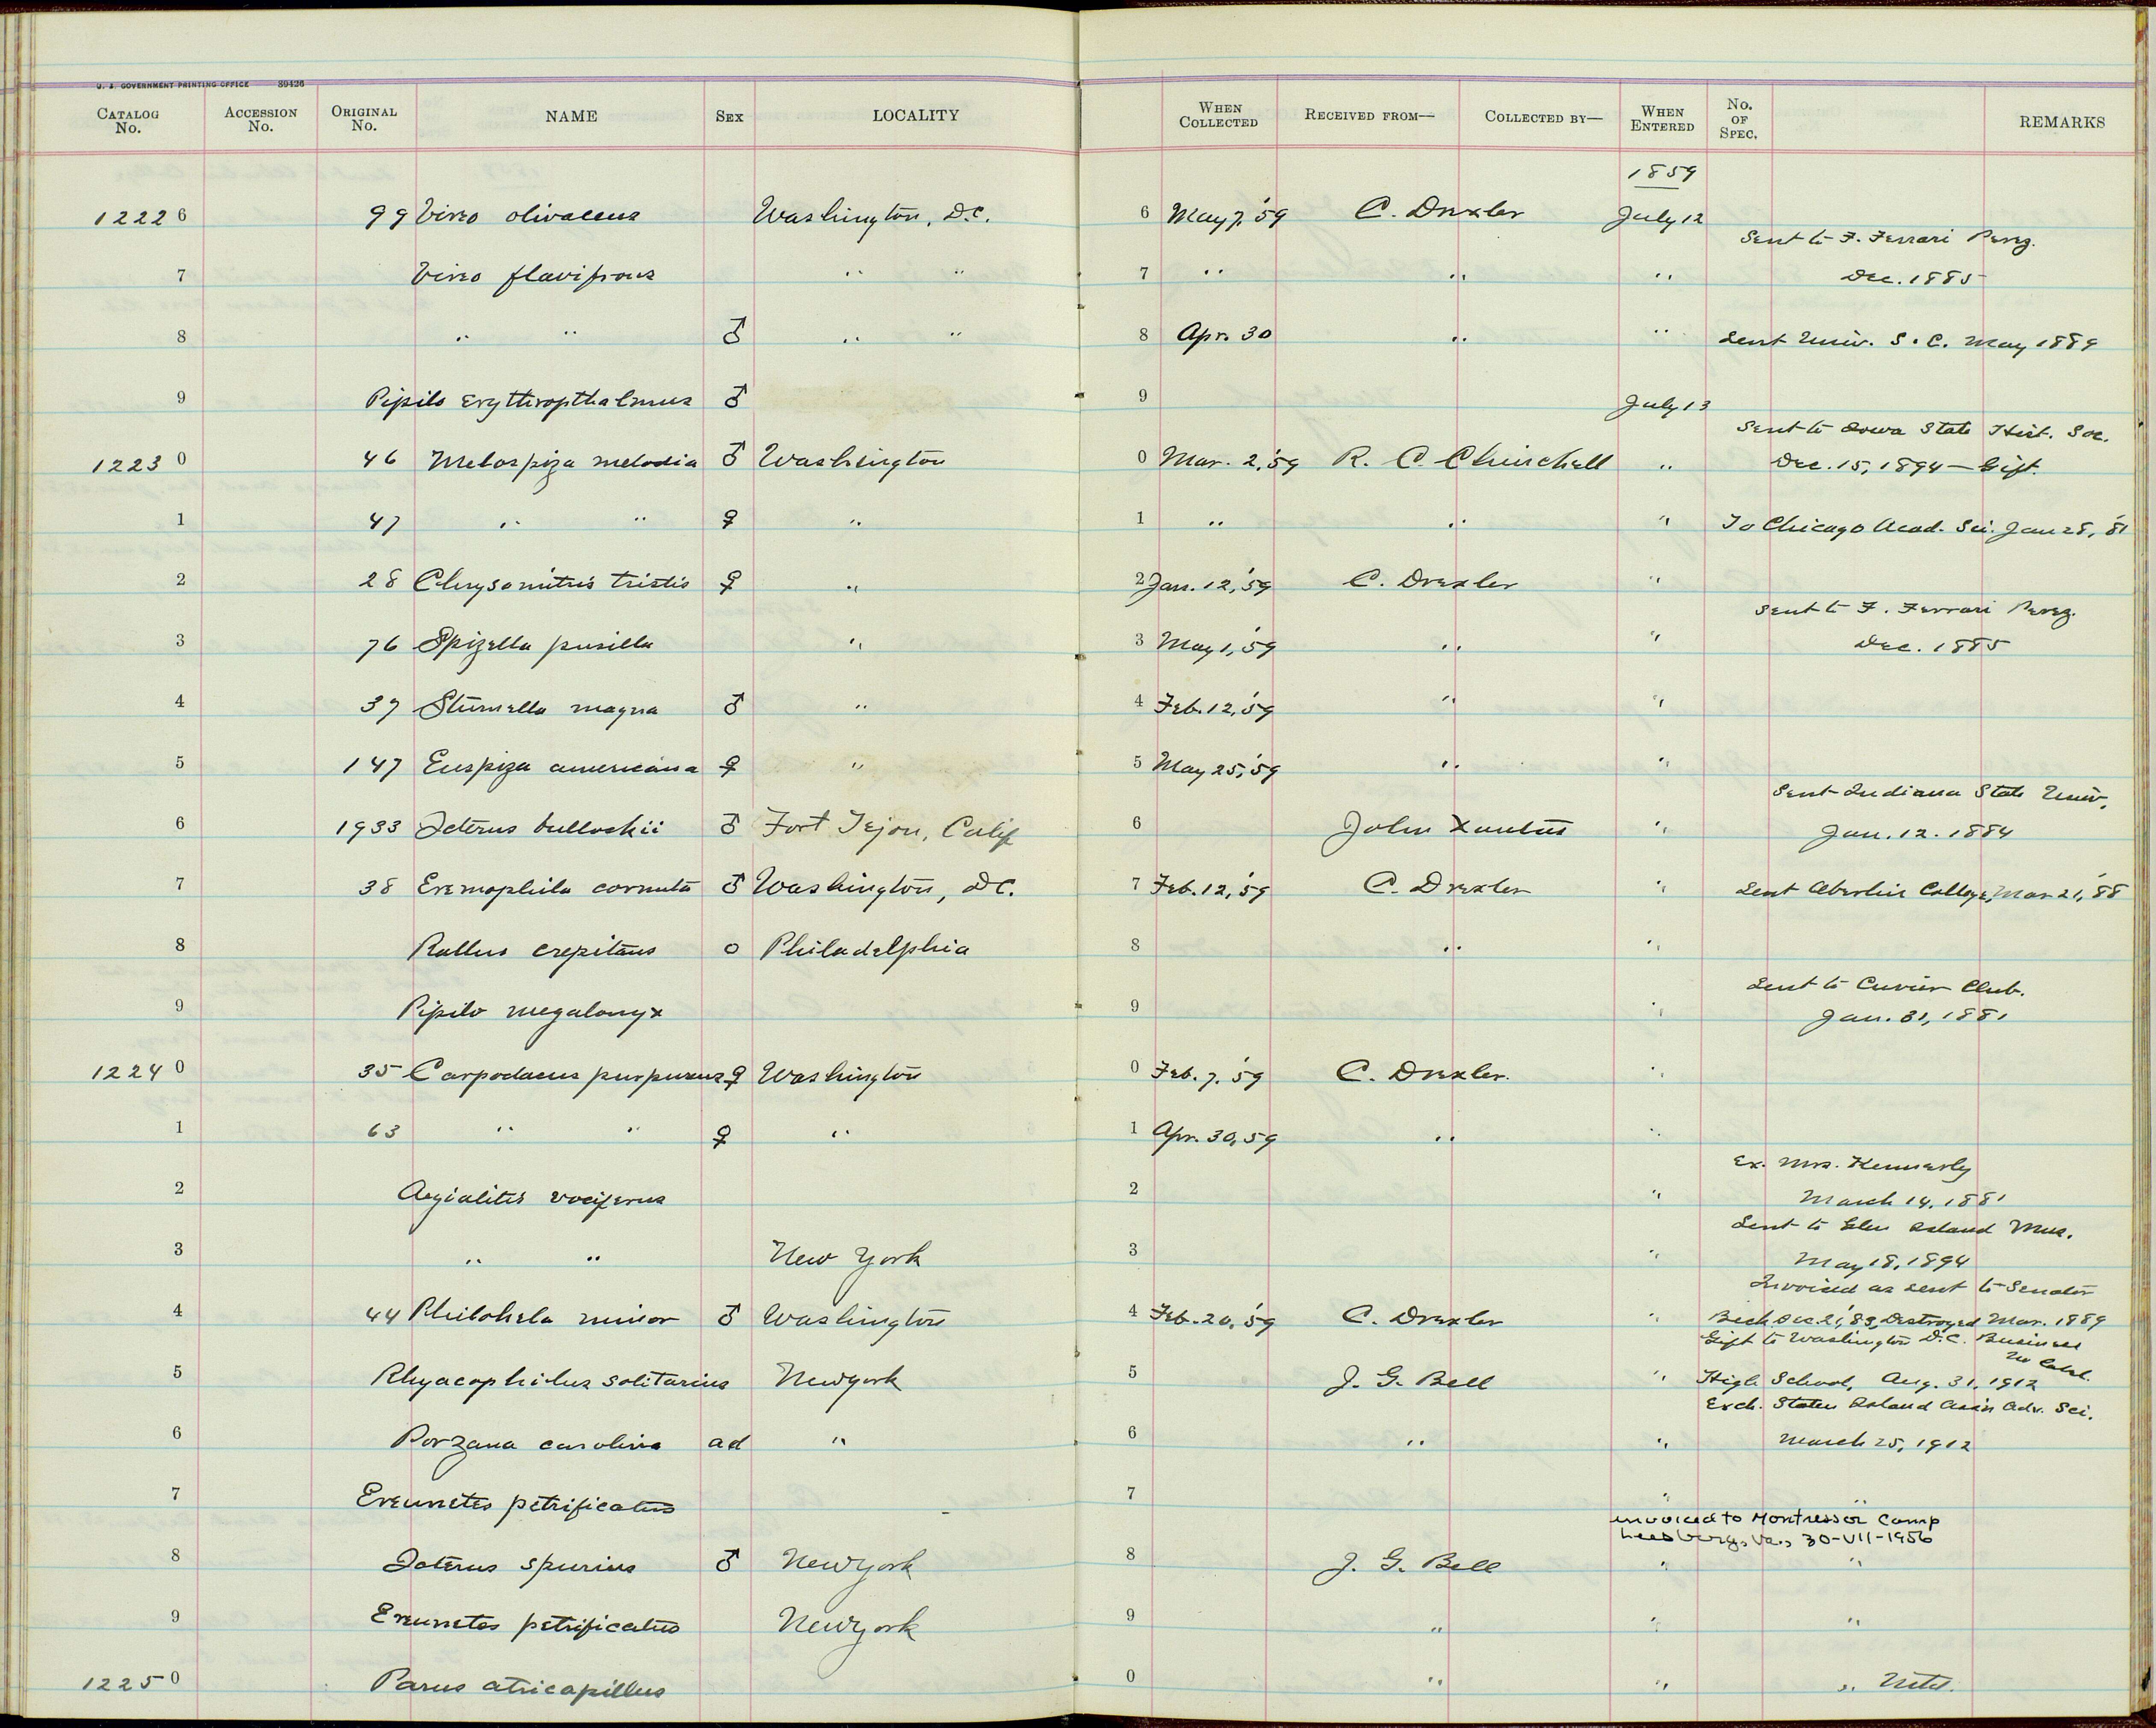 U. S. GOVERNMENT PRINTING OFFICE 39426
CATALOG No. ACCESSION No. ORIGINAL No. NAME SEX LOCALITY WHEN COLLECTED RECEIVED FROM— COLLECTED BY— WHEN ENTERED No. OF SPEC. REMARKS
1859
12226 99 Vireo olivaceus Washington, D.C. 6 May 7, '59 C. Drexler July 12
Sent to F. Ferrari Perez.
7 Vireo flavifrons " " 7 " " " Dec. 1885
8 " " ♂ " " 8 Apr. 30 " " Sent Univ. S. C. May 1889
9 Pipilo erythropthalmus ♂ 9 July 13
Sent to Iowa State Hist. Soc.
12230 46 Melospiza melodia ♂ Washington 0 Mar. 2, '59 R. C. Churchell " Dec. 15, 1894 — Gift.
1 47 " " ♀ " 1 " " " To Chicago Acad. Sci. Jan 28, '81
2 28 Chrysomitris tristis ♀ " 2 Jan. 12, '59 C. Drexler "
Sent to F. Ferrari Perez.
3 76 Spizella pusilla " 3 May 1, '59 " " Dec. 1885
4 37 Sturnella magna ♂ " 4 Feb. 12, '59 " "
5 147 Euspiza americana ♀ " 5 May 25, '59 " "
Sent Indiana State Univ.
6 1933 Icterus bullockii ♂ Fort Tejon, Calif 6 John Xantus " Jan. 12. 1884
7 38 Eremophila cornuta ♂ Washington, DC. 7 Feb. 12, '59 C. Drexler " Sent Oberlin College, Mar 21, '88
8 Rallus crepitans o Philadelphia 8 " "
Sent to Cuvier Club.
9 Pipilo megalonyx 9 " Jan. 31, 1881
12240 35 Carpodacus purpureus ♀ Washington 0 Feb. 7. '59 C. Drexler. "
1 63 " " ♀ " 1 Apr. 30, 59 " "
Ex. Mrs. Kennerly
2 Aegialitis vociferus 2 " March 14, 1881
Sent to Glen Island Mus.
3 " " New York 3 " May 18, 1894
Invoiced as sent to Senator
4 44 Philohela minor ♂ Washington 4 Feb. 20, '59 C. Drexler " Beck Dec. 21, '88, Destroyed Mar. 1889
Gift to Washington D.C. Business
5 Rhyacophilus solitarius Newyork 5 J. G. Bell " High School, Aug. 31, 1912
Exch. Staten Island Ass'n Adv. Sci.
6 Porzana carolina ad " 6 " " March 25, 1912
7 Ereunetes petrificatus 7 " "
invoiced to Montressor Camp
Leesburg, Va., 30-VII-1956
8 Icterus spurius ♂ Newyork 8 J. G. Bell " "
9 Ereunetes petrificatus Newyork 9 " " "
12250 Parus atricapillus 0 " " "